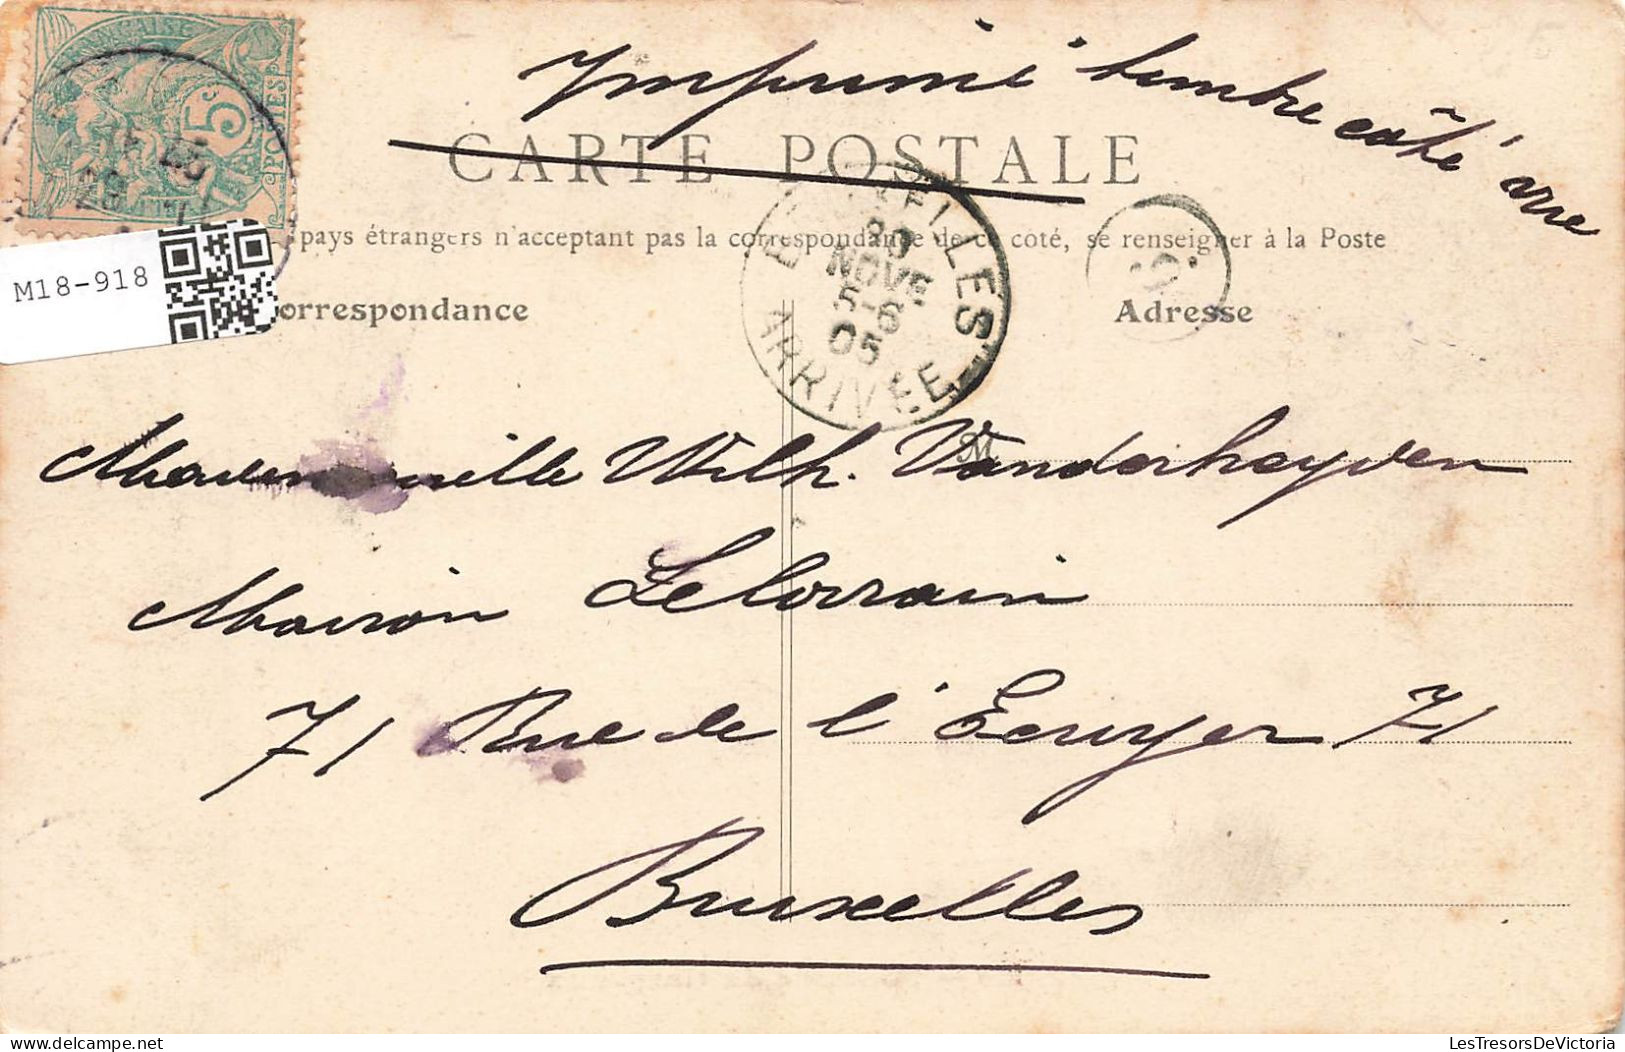 Imprimé timbre côté vue
CARTE POSTALE
pays étrangers n'acceptant pas la correspondance de ce côté, se renseigner à la Poste
orrespondance
Adresse
M18-918
FRANÇAISE
5c
POSTES
ELLES
30
NOVE
5-6
05
ARRIVÉE
M
Mademoiselle Wilh. Vanderheyden
Maison Lelorrain
71 Rue de l'Ecuyer 71
Bruxelles
LesTresorsDeVictoria.com
LesTresorsDeVictoria